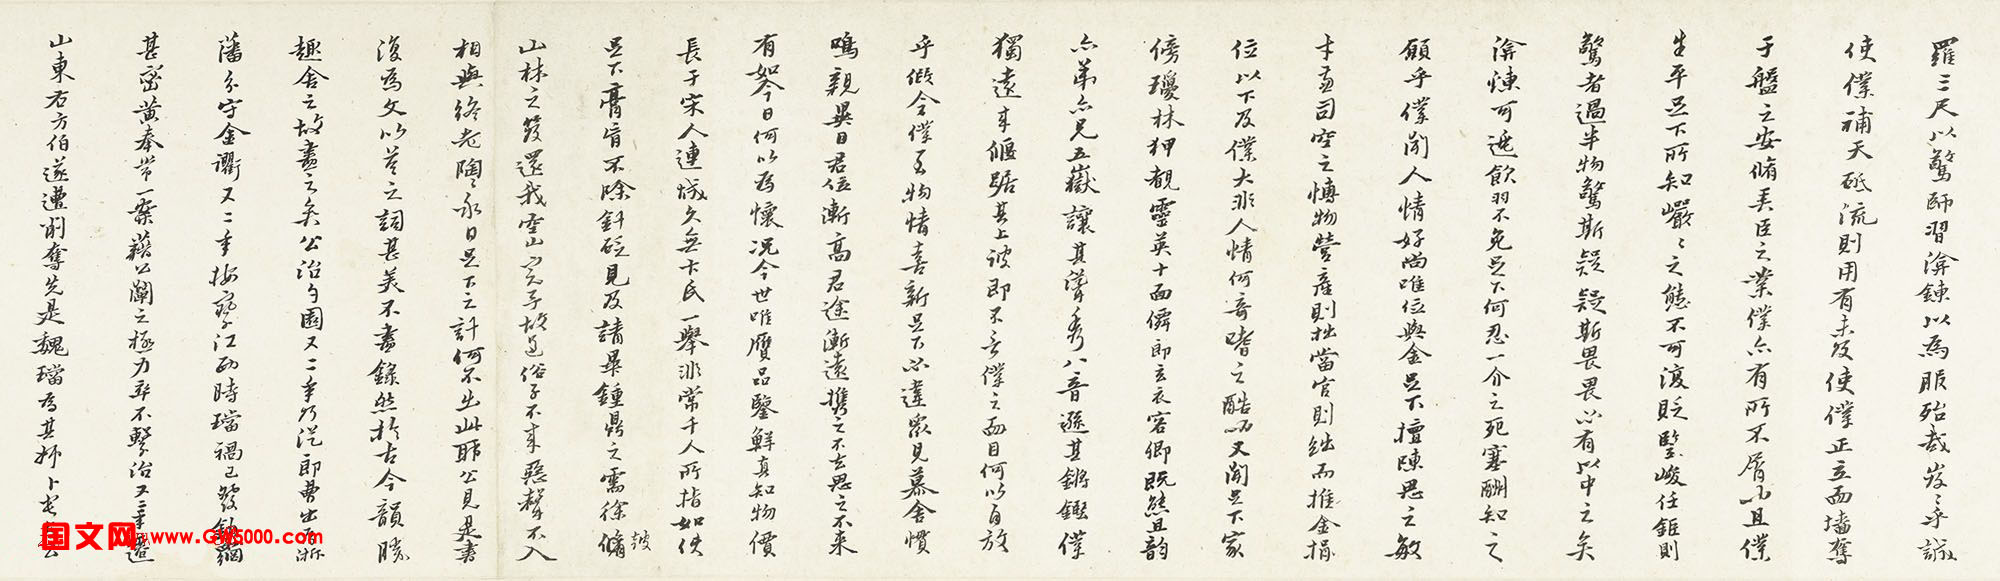 羅三尺以驚師習漭鍊以為服殆哉岌乎誠
使僕補天砥流則用有未及使僕正立而墻奪
于盤之安脩美臣之業僕亦有所不屑也且僕
生平足下所知巖之態不可復貶堅峻任鉅則
驚者過半物驚斯疑疑斯畏畏必有以中之矣
漭煉可遁飲羽不免足下何忍一介之死塞酬知之
願乎僕閱人情好尚唯位與金足下擅陳思之敏
才司空之博物營產則拙當官則絀而推金揖
位以下及僕大非人情何奇嗜之酷而又聞足下家
傍瓊林狎覩靈英十面僻即玄衣客卿既然且韵
亦弟亦兄五嶽讓其聳秀八音遜其鏘鏗僕
獨遠來偃踞其上彼即不言僕之面目何以自放
乎假令僕至物情喜新足下必違眾見慕舍慣
鳴親異日君位漸高君途漸遠攜之不去思之不來
有如今日何以為懷況今世唯贋品鑒鮮真知物價
長于宋人連城久無卞氏一舉非常千人所指如使
足下膏肓不除針砭見及請畢鍾鼎之需徐脩
山林之發還我空山完子故道俗子不來惡聲不入
相與終老陶永日足下之計何不出此耶公見是書
復為文以答之詞甚美不盡錄然於古今韻勝
趣舍之故盡之矣公治勺園又二年乃從即曹出西浙
藩分守金衢又二年按察江西時璫禍已發鉤綱
甚密黃奉常一案藉公闡之極力卒不繫治又三年遷
山東右方伯遂遭削奪先是魏璫為其
国文网 www.GW5000.com